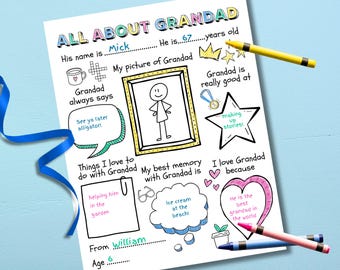 ALL ABOUT GRANDAD
His name is Mick He is 67 years old
My picture of Grandad
Grandad
always says
Grandad is
really good at
See ya later
alligator!
making
up
stories!
Things I love to
do with Grandad
My best memory
with Grandad is
I love Grandad
because
helping him
in the
garden
Ice cream
at the
beach!
He is the
best
grandad in
the world
From William
Age 6